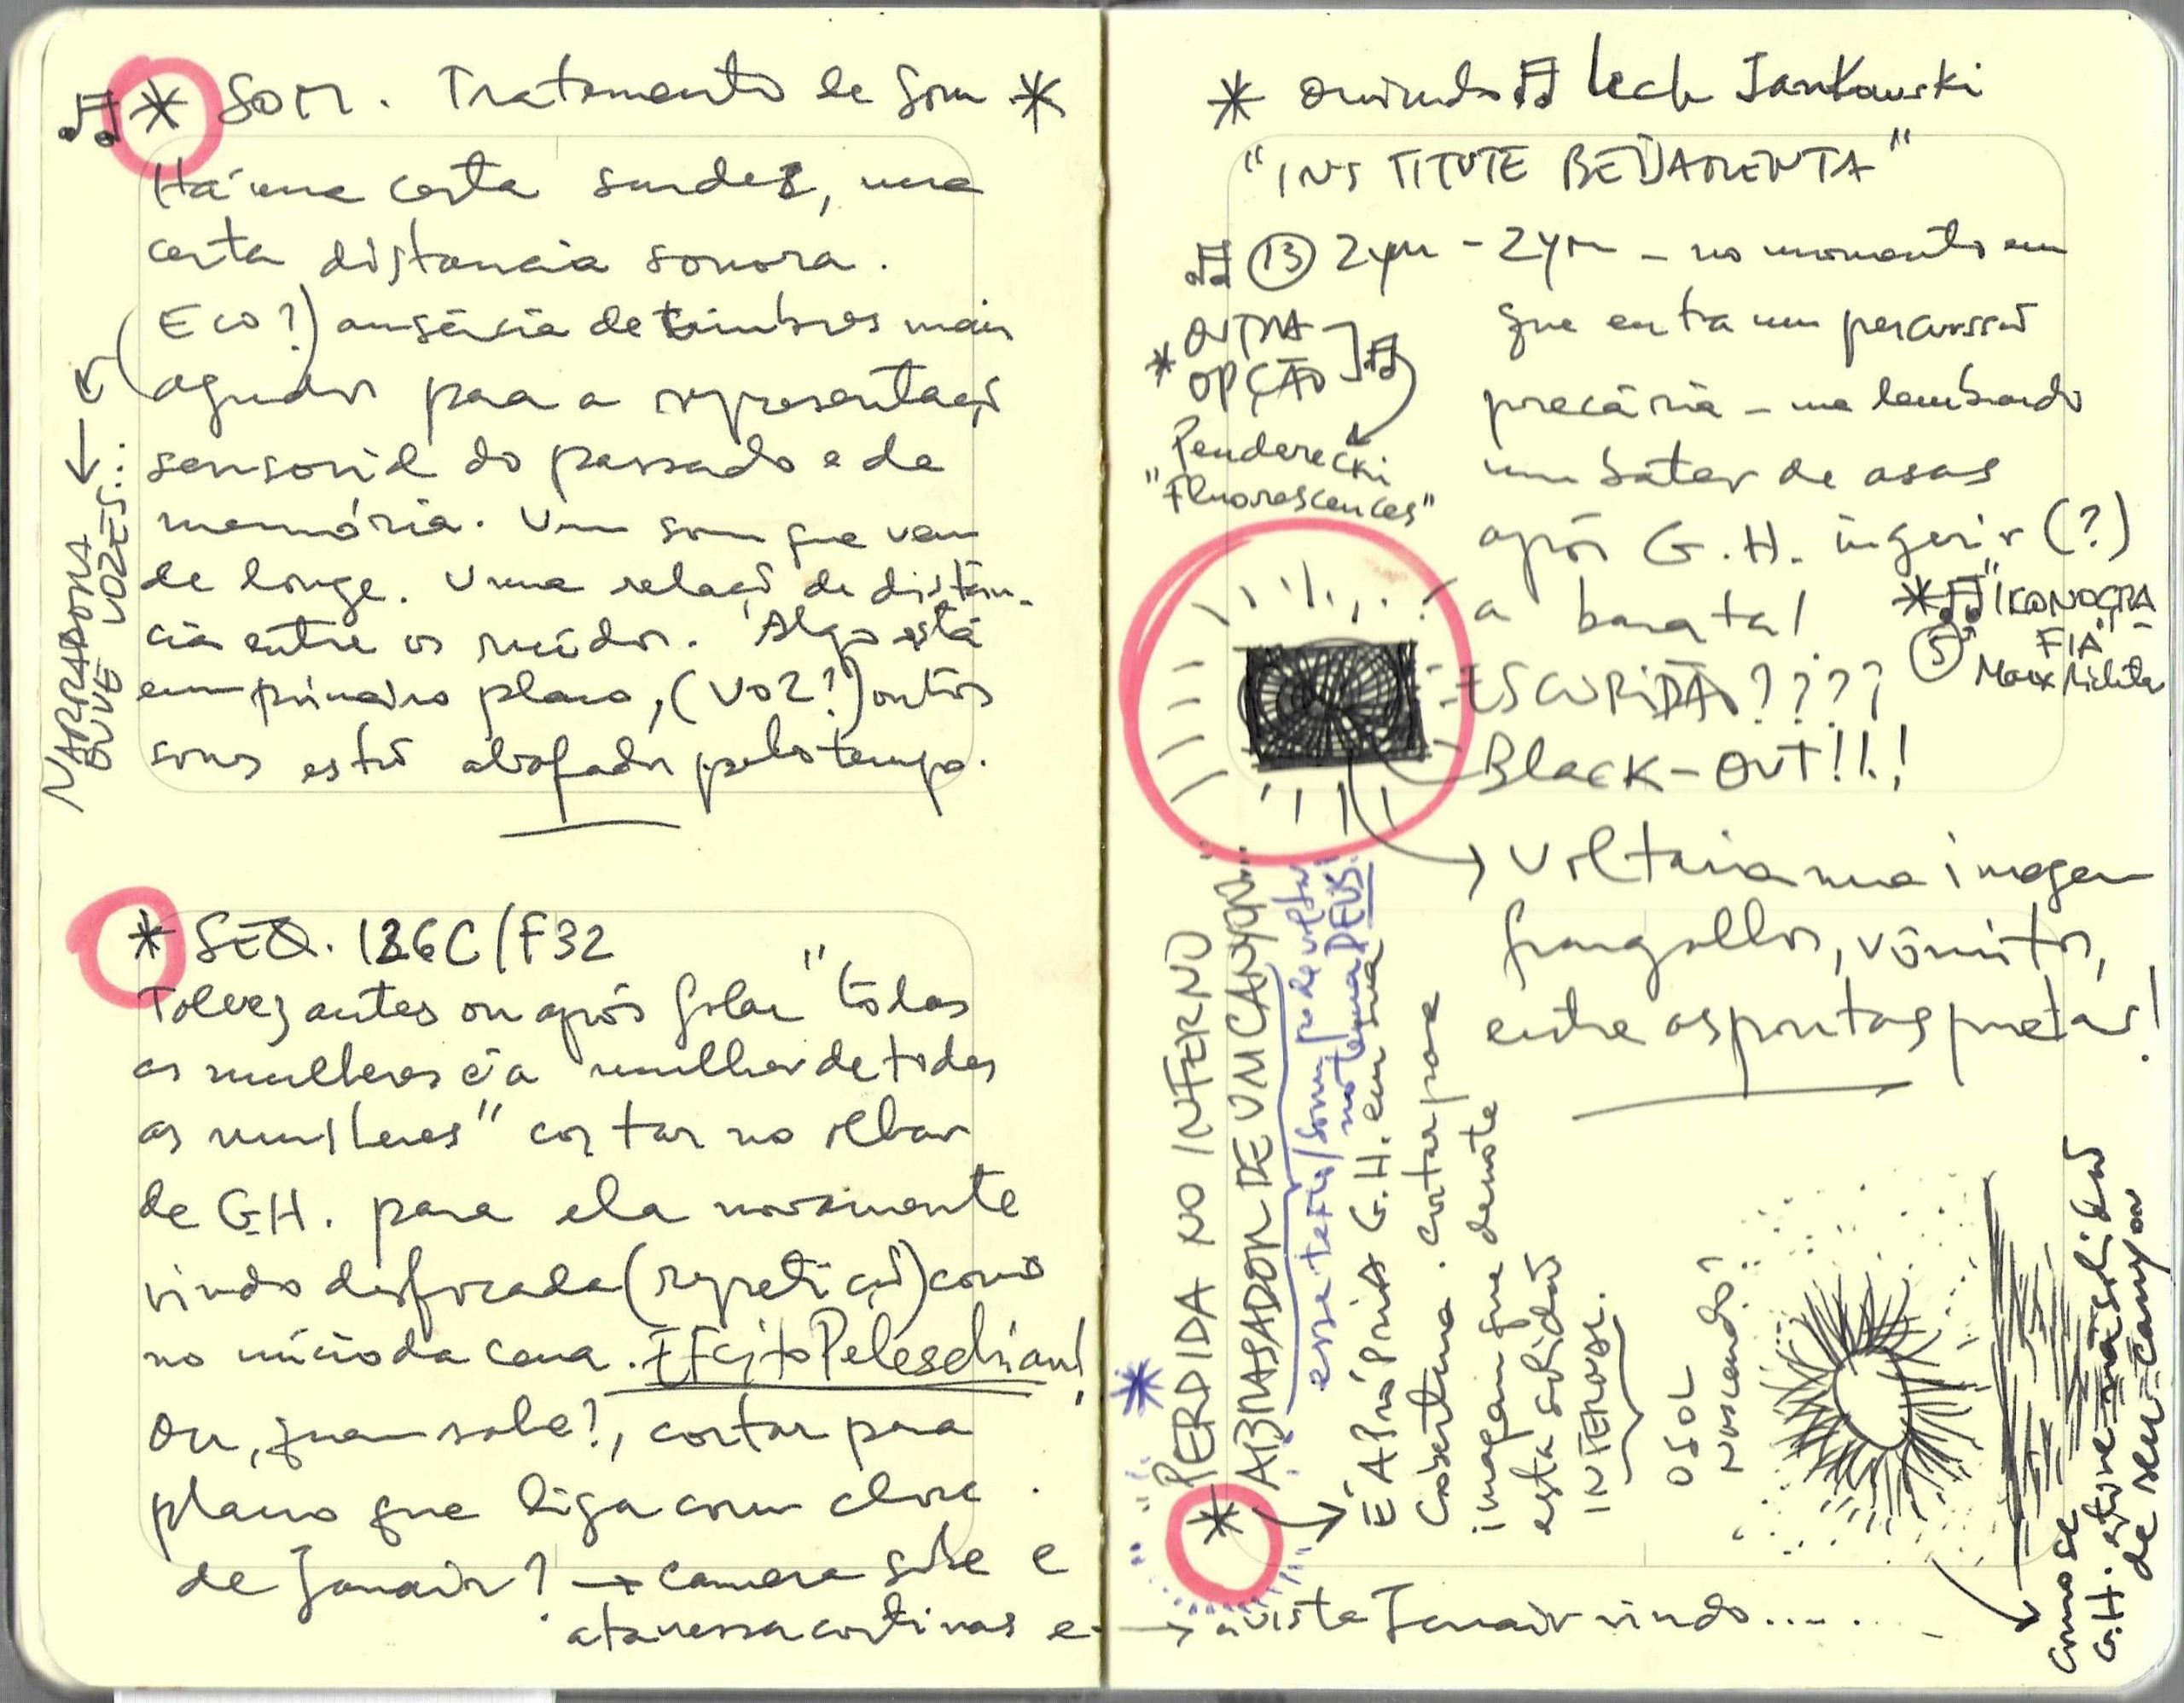 * SOM. Tratamento de Som *
Há uma certa surdez, uma
certa distância sonora.
(Eco?) ausência de timbres mais
agudos para a representação
sensorial do passado e da
memória. Um som que vem
de longe. Uma relação de distân-
cia entre os ruídos. Algo está
em primeiro plano, (VOZ?) outros
sons estão abafados pelo tempo.
NARRADORA
OUVE VOZES...
* SEQ. 126C/F32
Talvez antes ou após falar "todas
as mulheres é a mulher de todas
as mulheres" cortar no olhar
de G.H. para ela novamente
vindo desfocada (repetição) como
no início da cena. EFEito Peleschian!
Ou, quem sabe?, cortar para
plano que liga com close
de Janair? → camera sobe e
atravessa cortinas e
* Ouvindo Lech Jankowski
"INSTITUTE BENJAMENTA"
13 Zym - Zym - no momento em
que entra um percussão
precária - me lembrando
um bater de asas
após G.H. ingerir (?)
a barata!
ESCURIDÃO????
BLacK-OUT!!!
* OUTRA
OPÇÃO
Penderecki
"Fluorescences"
* "IKONOGRA
FIA"
5 Max Richter
→ Voltaria na imagem
frangalhos, vômitos,
entre as portas pretas!
"PERDIDA NO INFERNO
ABRASADOR DE UM CANYON..."
no tema DEUS!
→ É A PRÓPRIA G.H. em sua
cobertura. cortar para
imagem que denote
esta solidão
INTEROSE.
O SOL
nascendo?
como se
G.H. estivesse na solidão
de seu canyon
→ avista Janair vindo.....